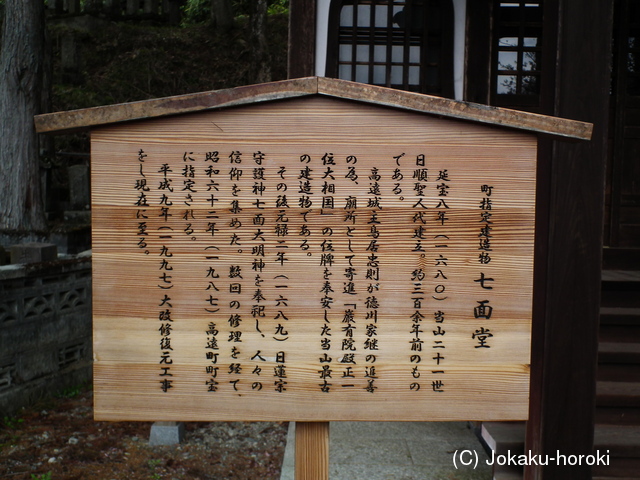 町指定建造物 七面堂
延宝八年（一六八〇）当山二十一世
日順聖人代建立。約三百余年前のもの
である。
高遠城主鳥居忠則が徳川家継の追善
の為、廟所として寄進「厳有院殿正一
位大相国」の位牌を奉安した当山最古
の建造物である。
その後元禄二年（一六八九）日蓮宗
守護神七面大明神を奉祀し、人々の
信仰を集めた。数回の修理を経て
昭和六十二年（一九八七）高遠町町宝
に指定される。
平成九年（一九九七）大改修復元工事
をし現在に至る。
(C)Jokaku-horoki